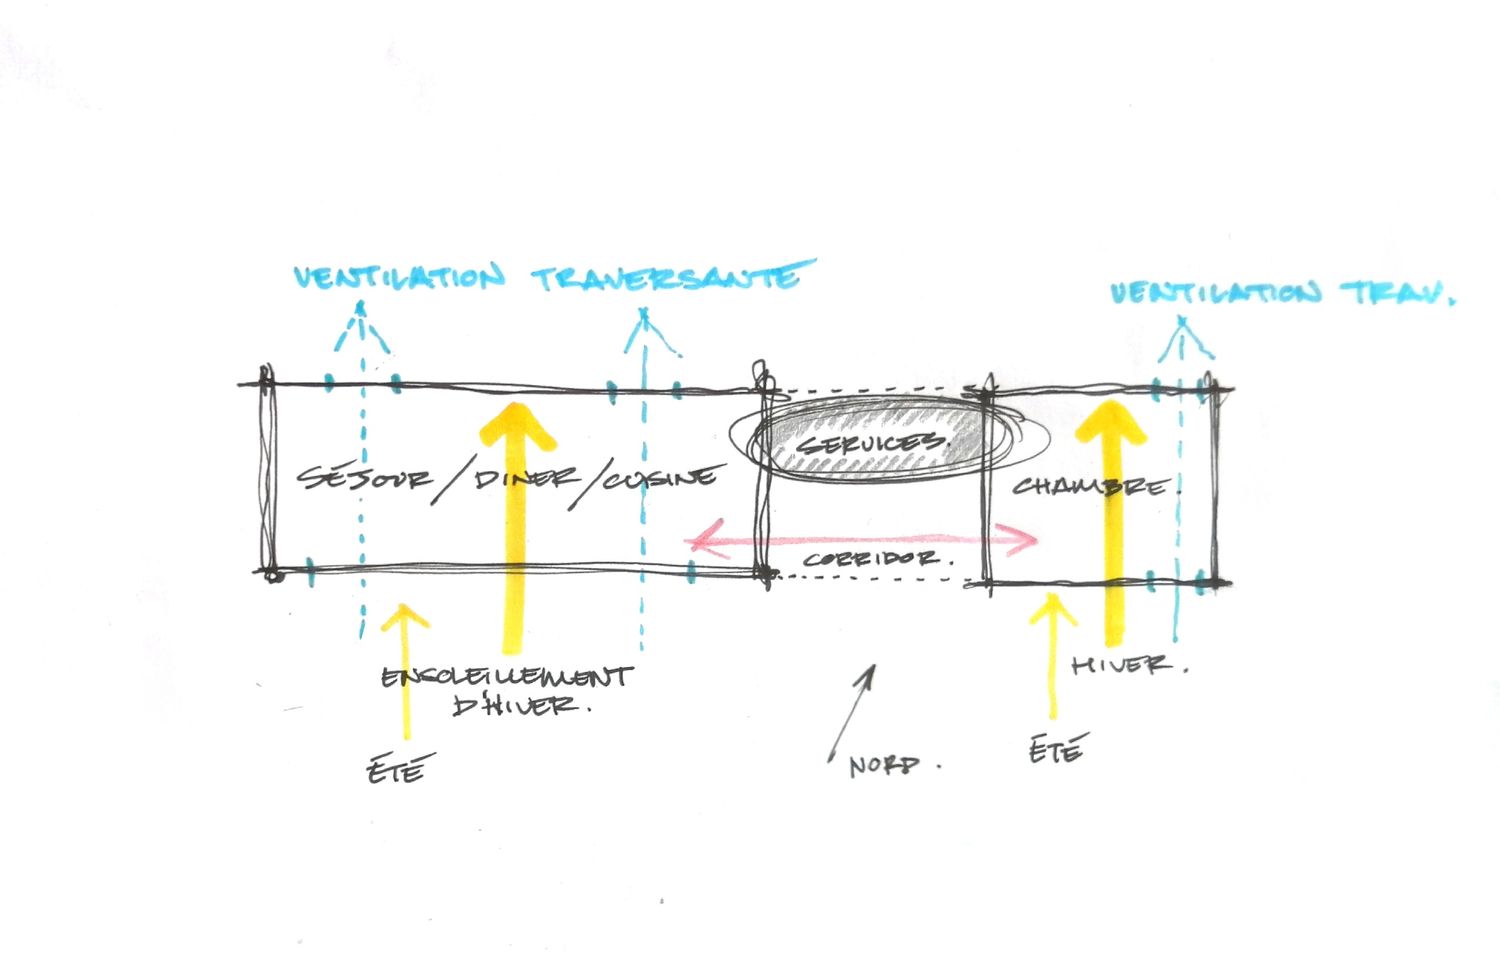 VENTILATION TRAVERSANTE
VENTILATION TRAV.
SERVICES.
SÉJOUR/DINER/CUISINE
CHAMBRE.
CORRIDOR.
ENSOLEILLEMENT
D'HIVER.
HIVER.
ÉTÉ
NORD.
ÉTÉ